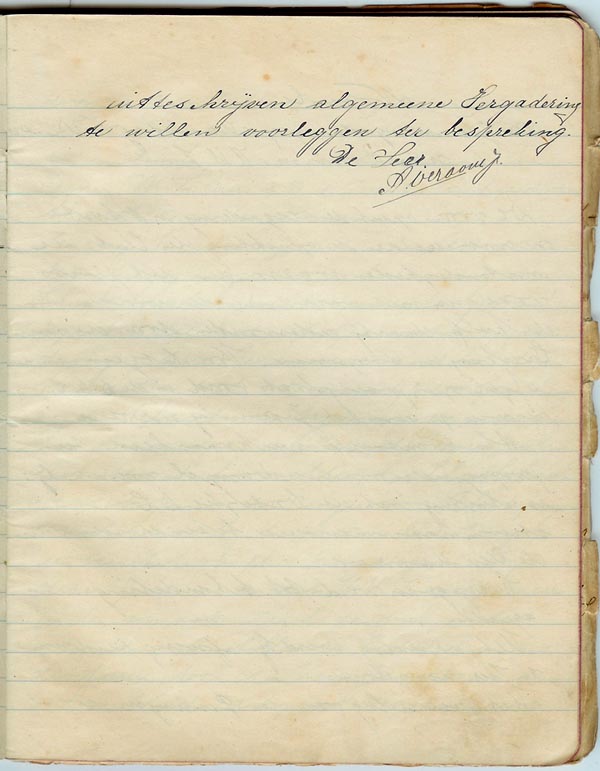 uitteschrijven algemeene Vergadering
te willen voorleggen ter bespreking.
De Secr.